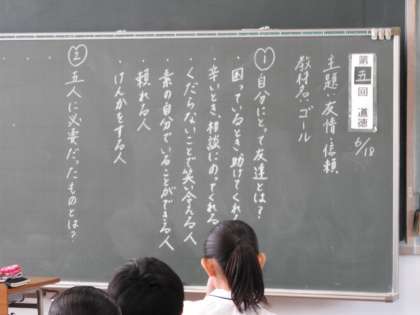 第五回 道徳
6/18
主題・友情 信頼
教材名・ゴール
① 自分にとって友達とは?
・困っているとき助けてくれ
・辛いとき、相談にのってくれる
・くだらないことで笑い合える人
・素の自分でいることができる人
・頼れる人
・けんかをする人
② 五人に必要だったものとは?